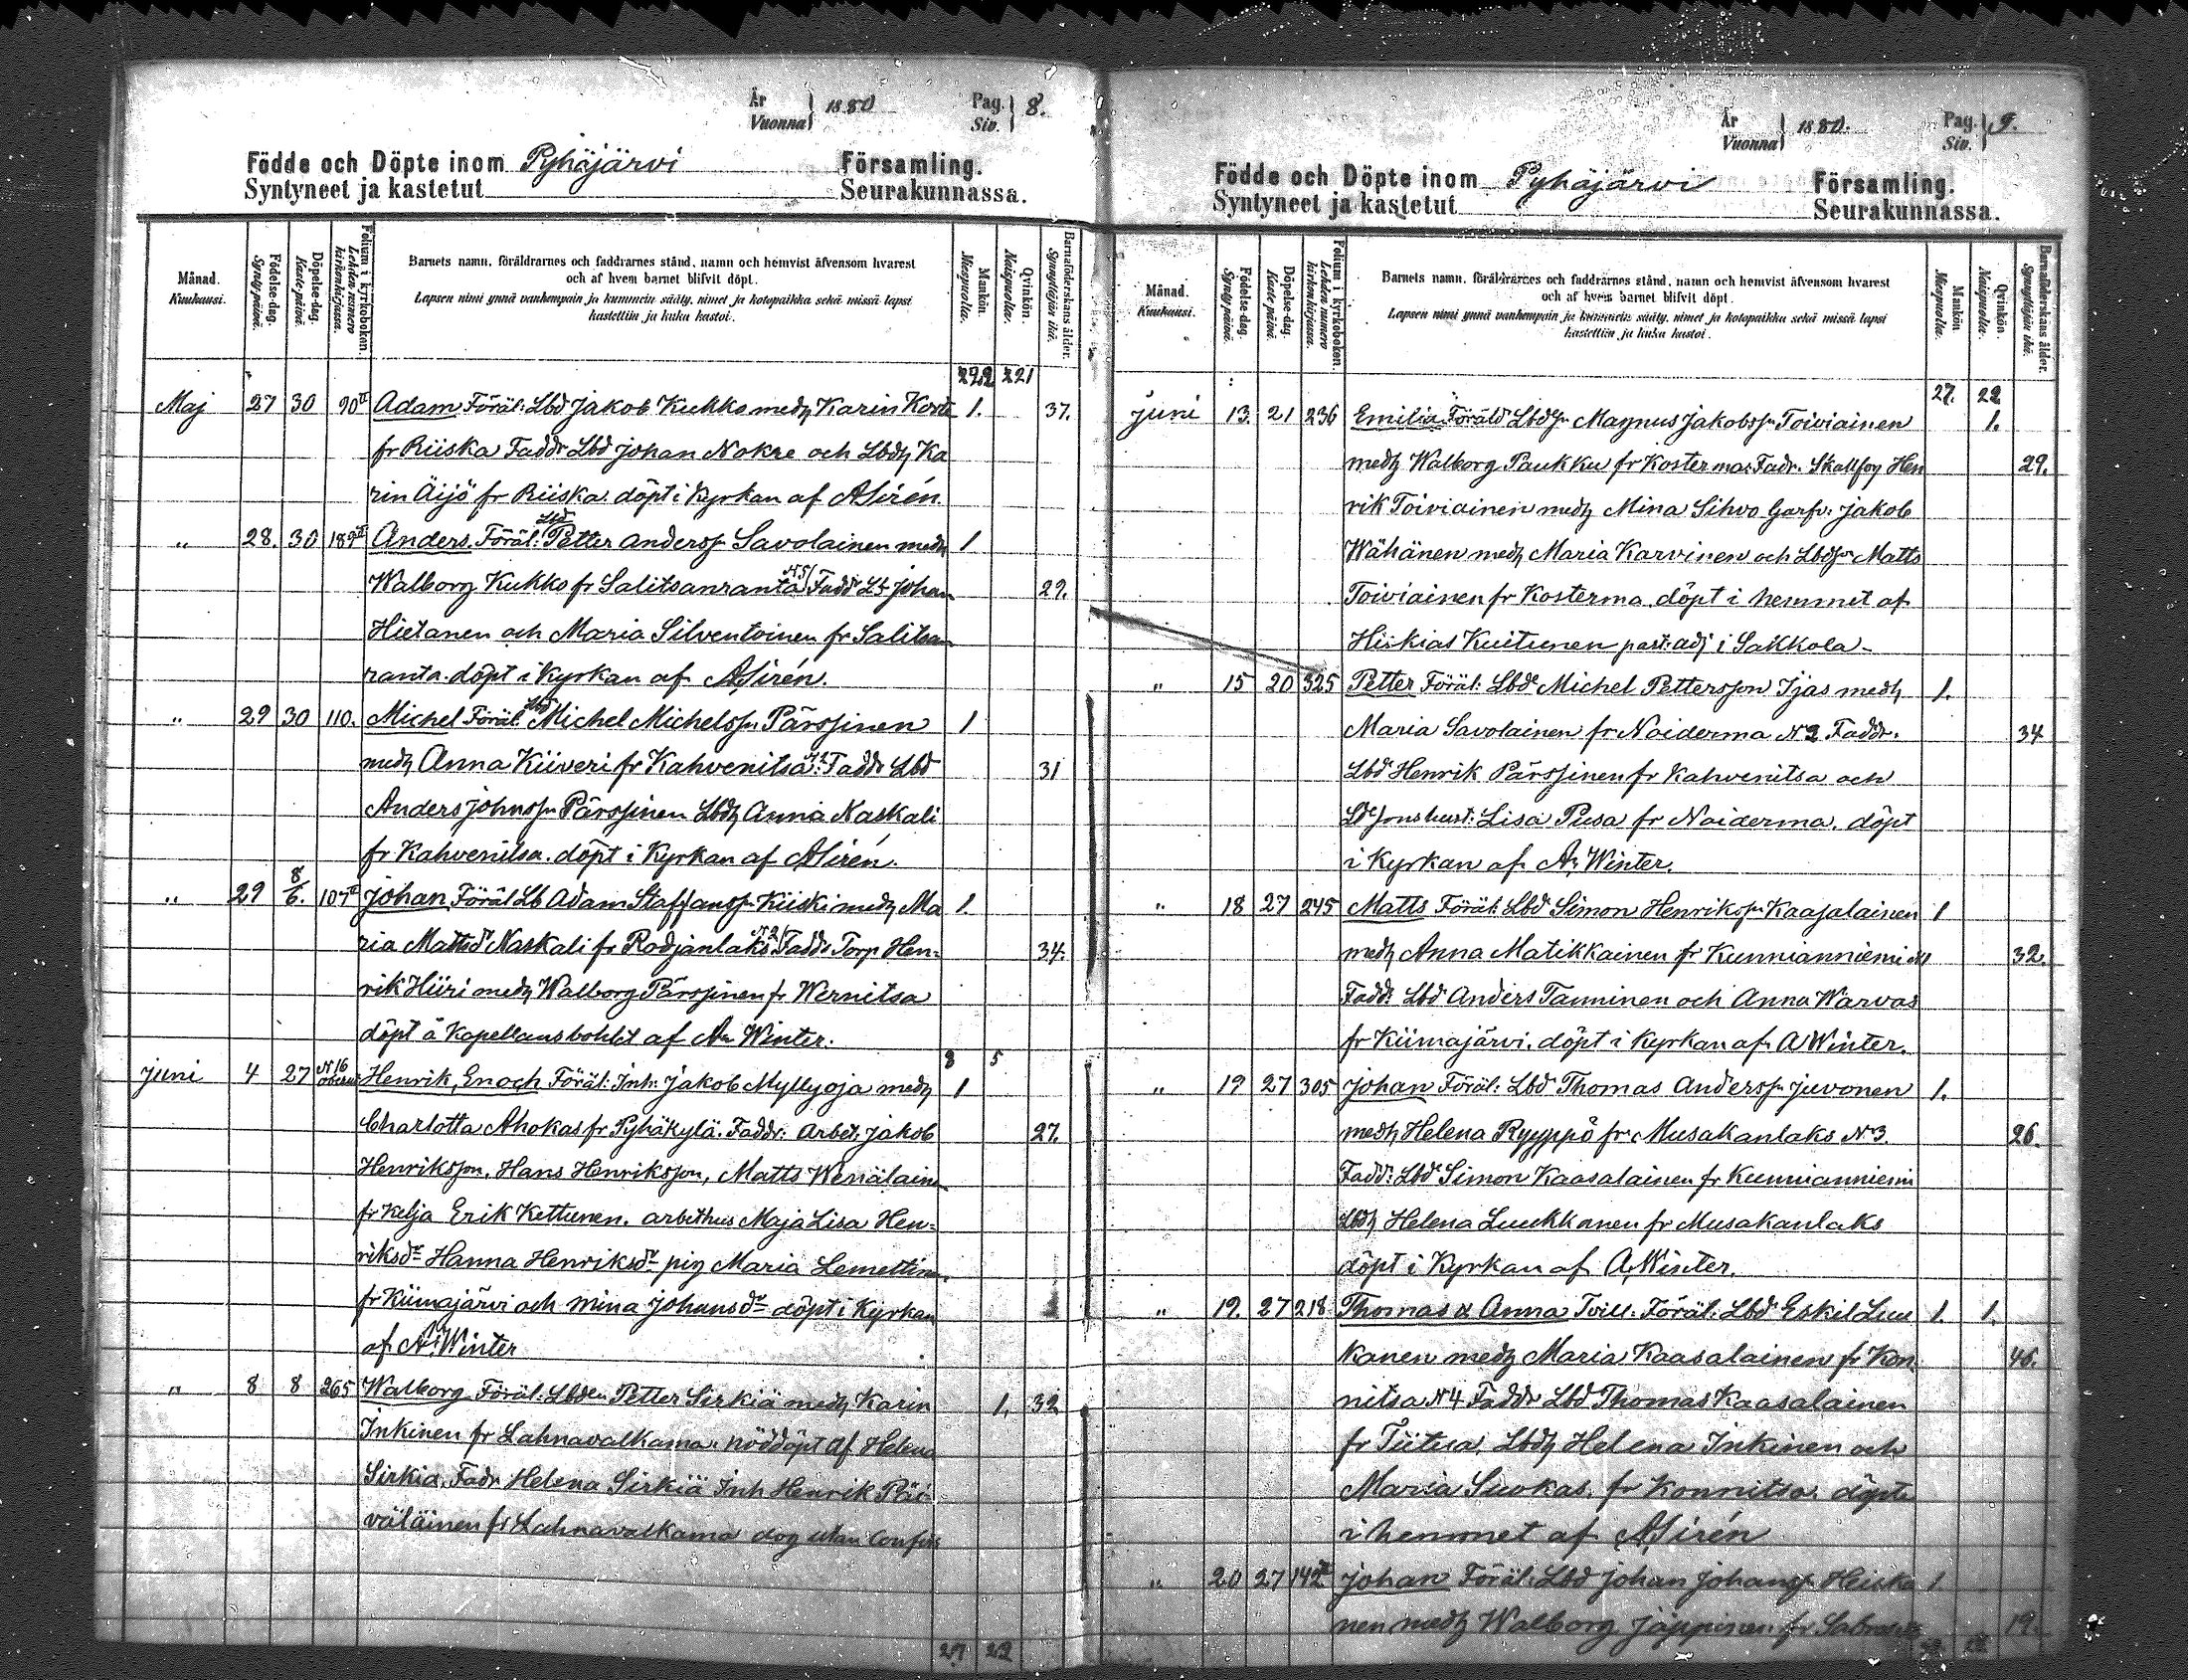 År
Vuonna } 1880
Pag.
Siv. } 8.
Födde och Döpte inom Pyhäjärvi Församling.
Syntyneet ja kastetut Seurakunnassa.
Månad.
Kuukausi.
Födelse-dag.
Synty-päivä.
Döpelse-dag.
Kaste-päivä.
Folium i kyrkoboken.
Lehden numero kirkonkirjassa.
Barnets namn, föräldrarnes och faddrarnes stånd, namn och hemvist äfvensom hvarest
och af hvem barnet blifvit döpt.
Lapsen nimi ynnä vanhempain ja kummein sääty, nimet ja kotopaikka sekä missä lapsi
kastettiin ja kuka kastoi.
Mankön.
Miespuolia.
Qvinkön.
Naispuolia.
Barnaföderskans ålder.
Synnyttäjän ikä.
222 221
Maj 27 30 90 II Adam Föräl: Lbd Jakob Kukko medh Karin Korte 1. 37.
fr Riiska Faddr Lbd Johan Nokre och Lbdh Ka
rin Äijö fr Riiska. döpt i Kyrkan af ASirén.
Lbd
" 28. 30 189 II Anders. Föräl: Petter Anderss: Savolainen medh 1
Walborg Kukko fr Salitsanranta N5/ Faddr Lb Johan 29.
Hietanen och Maria Silventoinen fr Salitsan
ranta. döpt i Kyrkan af ASirén.
Lbd
" 29 30 110. Michel Föräl: Michel Michelss: Pärssinen 1
medh Anna Kiiveri fr Kahvenitsa Faddr Lbd 31
Anders Johnss: Pärssinen Lbdh Anna Naskali
fr Kahvenitsa. döpt i Kyrkan af ASirén.
" 29 8/6. 107 II Johan, Föräl Lb Adam Staffanss: Kiiski medh Ma 1.
ria Mattsdr Naskali fr Rodjanlaks N2/ Faddr Torp Hen= 34.
rik Hiiri medh Walborg Pärssinen fr Wernitsa
döpt å Kapellansbohlet af An Winter.
8 5
Juni 4 27 N 16 Henrik, Enoch Föräl: Inh: Jakob Myllyoja medh 1
Charlotta Ahokas fr Pyhäkylä. Faddr: Arbet. Jakob 27.
Henriksson, Hans Henriksson, Matts Wenäläinen
fr Kelja Erik Kettunen. arbethus Maja Lisa Hen=
riksdr Hanna Henriksdr pig Maria Lemettinen
fr Kiimajärvi och Mina Johansdr döpt i Kyrkan
af A: Winter
" 8 8 265 Walborg Föräl: Lbden Petter Sirkiä medh Karin 1. 32
Inkinen fr Lahnavalkama. nöddöpt af Helena
Sirkiä, Fadr Helena Sirkiä Inh Henrik Päi=
väläinen fr Lahnavalkama dog utan Confirs
27 22
År
Vuonna } 1880.
Pag.
Siv. } 9.
Födde och Döpte inom Pyhäjärvi Församling.
Syntyneet ja kastetut Seurakunnassa.
Månad.
Kuukausi.
Födelse-dag.
Synty-päivä.
Döpelse-dag.
Kaste-päivä.
Folium i kyrkoboken.
Lehden numero kirkonkirjassa.
Barnets namn, föräldrarnes och faddrarnes stånd, namn och hemvist äfvensom hvarest
och af hvem barnet blifvit döpt.
Lapsen nimi ynnä vanhempain ja kummein sääty, nimet ja kotopaikka sekä missä lapsi
kastettiin ja kuka kastoi.
Mankön
Miespuolia.
Qvinkön.
Naispuolia.
Barnaföderskans ålder.
Synnyttäjän ikä.
27. 22
Juni 13. 21 236 Emilia Föräld Lbds: Magnus Jakobss: Toiviainen 1.
medh Walborg Paukku fr Kosterma. Fadr. Skallfog Hen 29.
rik Toiviainen medh Mina Sihvo Garfv: Jakob
Wähänen medh Maria Karvinen och Lbds: Matts
Toiviainen fr Kosterma. döpt i hemmet af
Hiskias Kuitunen past: adj i Sakkola
" 15 20 325 Petter Föräl: Lbd Michel Pettersson Ijas medh 1.
Maria Savolainen fr Noiderma N2 Faddr. 34
Lbd Henrik Pärssinen fr Kahvenitsa och
Lbdsonshust: Lisa Pusa fr Noiderma. döpt
i Kyrkan af A: Winter.
" 18 27 245 Matts Föräl: Lbd Simon Henrikss: Kaasalainen 1
medh Anna Matikkainen fr Kunnianniemi N1 32.
Fadd: Lbd Anders Tanninen och Anna Warvas
fr Kiimajärvi. döpt i Kyrkan af A Winter.
" 19 27 305 Johan Föräl: Lbd Thomas Anderss: Juvonen 1.
medh Helena Ryyppö fr Musakanlaks N3. 26.
Fadd: Lbd Simon Kaasalainen fr Kunnianniemi
Lbdh Helena Luukkanen fr Musakanlaks
döpt i Kyrkan af A. Winter.
" 19. 27 218 Thomas & Anna Tvill: Föräl: Lbd Eskil Luu 1. 1.
kanen medh Maria Kaasalainen fr Kon 46.
nitsa N4 Faddr Lbd Thomas Kaasalainen
fr Tiitua, Lbdh Helena Inkinen och
Maria Suokas. fr Konnitsa. döpte
i hemmet af ASirén
" 20 27 142 II Johan Föräl: Lbd Johan Johanss: Heiska 1
nen medh Walborg Jäppinen fr 19.